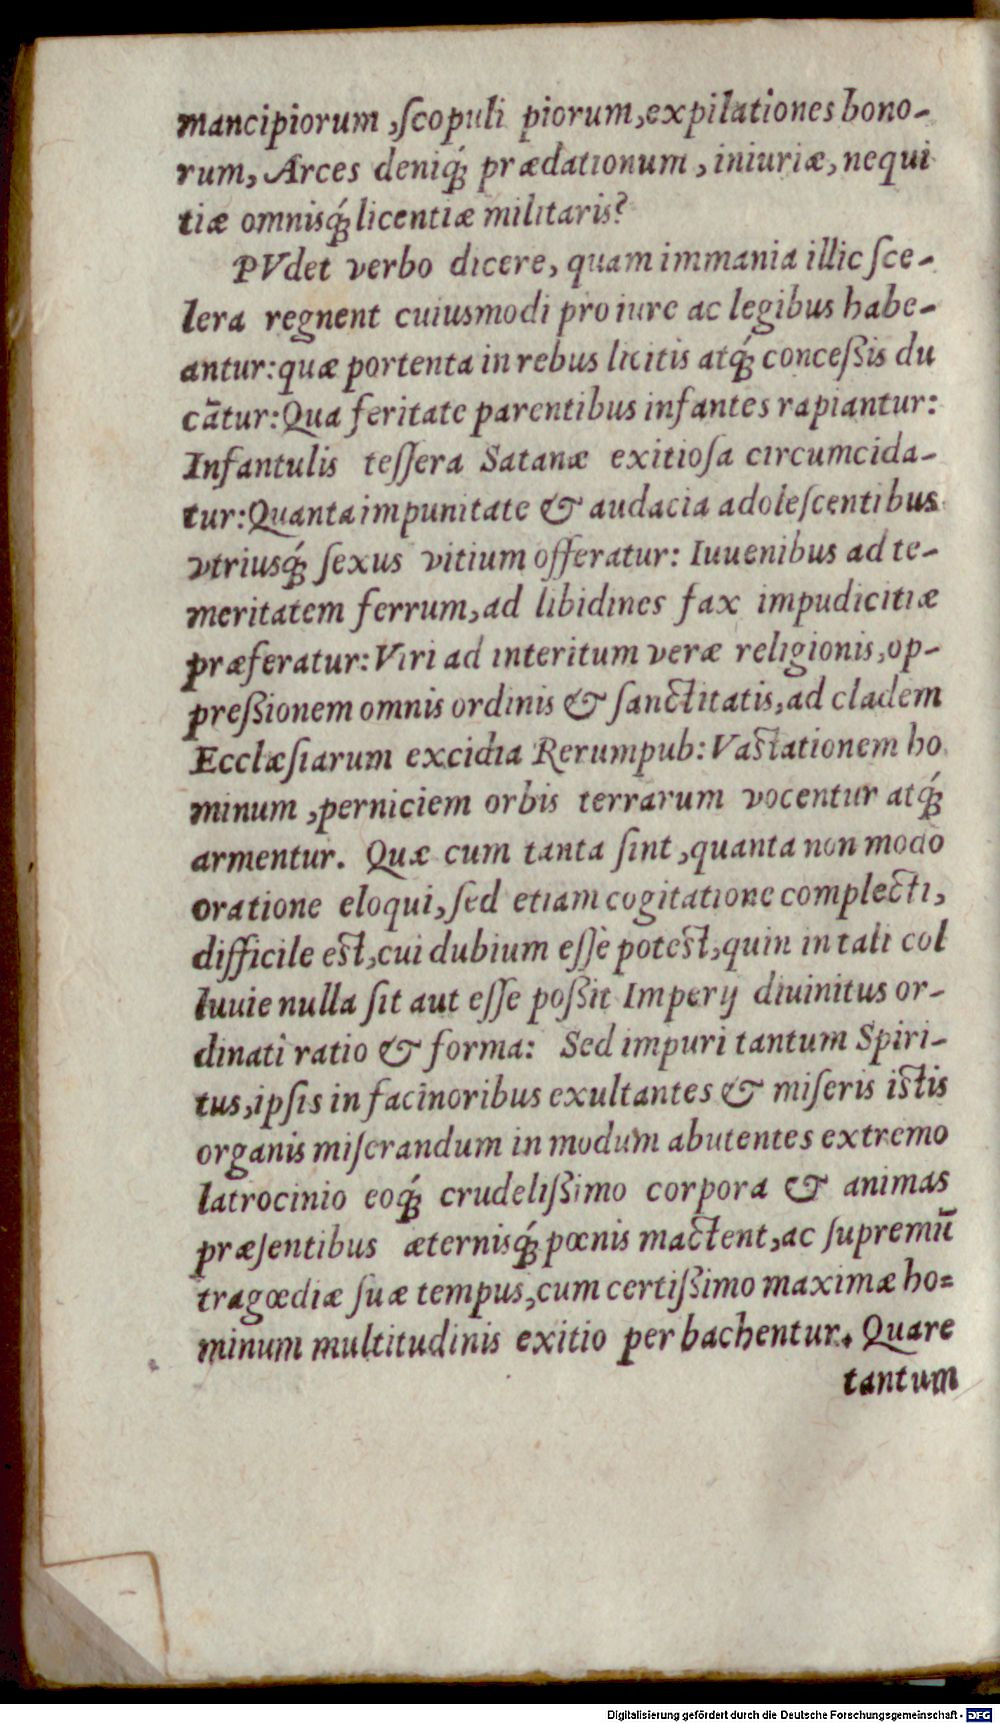 mancipiorum ,ſcopuli piorum,expilationes bono-
rum, Arces deniq́; prædationum , iniuriæ, nequi
tiæ omnisq́; licentiæ militaris?
PVdet verbo dicere, quam immania illic ſce-
lera regnent cuiusmodi pro iure ac legibus habe-
antur: quæ portenta in rebus licitis atq́; conceßis du
cātur: Qua feritate parentibus infantes rapiantur:
Infantulis teſſera Satanæ exitioſa circumcida-
tur: Quanta impunitate & audacia adoleſcentibus
vtriusq́; ſexus vitium offeratur: Iuuenibus ad te-
meritatem ferrum, ad libidines fax impudicitiæ
præferatur: Viri ad interitum veræ religionis, op-
preßionem omnis ordinis & ſanctitatis, ad cladem
Ecclæſiarum excidia Rerumpub: Vaſtationem ho
minum ,perniciem orbis terrarum vocentur atq́;
armentur. Quæ cum tanta ſint ,quanta non modo
oratione eloqui, ſed etiam cogitatione complecti,
difficile eſt, cui dubium eſſe poteſt, quin in tali col
luuie nulla ſit aut eſſe poßit Imperij diuinitus or-
dinati ratio & forma: Sed impuri tantum Spiri-
tus, ipſis in facinoribus exultantes & miſeris iſtis
organis miſerandum in modum abutentes extremo
latrocinio eoq́; crudelißimo corpora & animas
præſentibus æternisq́; pœnis mactent, ac ſupremū
tragœdiæ ſuæ tempus, cum certißimo maximæ ho=
minum multitudinis exitio per bachentur. Quare
tantum
Digitalisierung gefördert durch die Deutsche Forschungsgemeinschaft - DFG